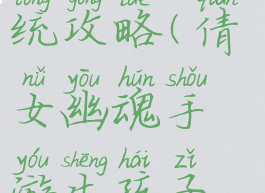 tǒng gōng lüè qiàn
统攻略(倩
nǚ yōu hún shǒu
女幽魂手
yóu shēng hái zǐ
游生孩子